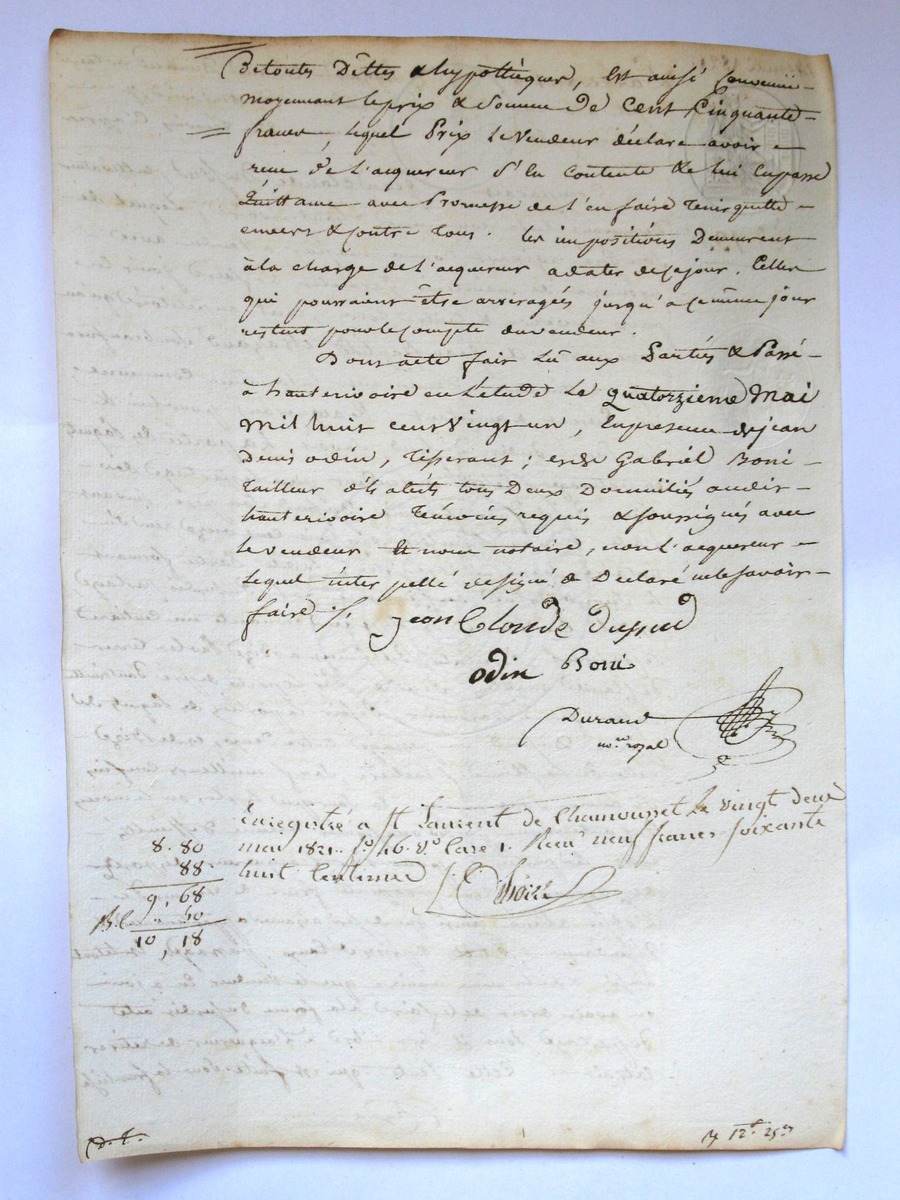 De toutes Dettes & hypothèques, Est ainsi Convenu
moyennant le prix & Somme De Cent Cinquante
francs, lequel Prix le vendeur déclare avoir
reçu de l'acquereur S'en Contente & lui En passe
Quittance avec Promesse de l'en faire Tenir quitte
envers & contre Tous. les impositions Demeurent
à la charge de l'acquereur a dater de ce jour. Celles
qui pourraient être arreragées jusqu'a ce même jour
restent pour le compte du vendeur.
Dont acte fait Lu aux Parties & Passé
à hauterivoire en L'etude Le quatorzieme Mai
Mil huit cent Vingt un, En presence de jean
Denis odin, Tisserant; & de Gabriel Boni
Tailleur d'habits tous Deux Domiciliés audit
hauterivoire Témoins requis & soussignés avec
le vendeur & nous notaire, non l'acquereur
lequel inter pellé de signé a Declaré ne le savoir
faire ./.
jean Claude
odin Boni
Durand
no.re royal
Enregistré a St Laurent de Chamousset le vingt deux
mai 1821. fo. 46. Vo. Case 1. Reçu neuf francs soixante
huit Centimes
8. 80
88
9, 68
50
10, 18
12f 25c